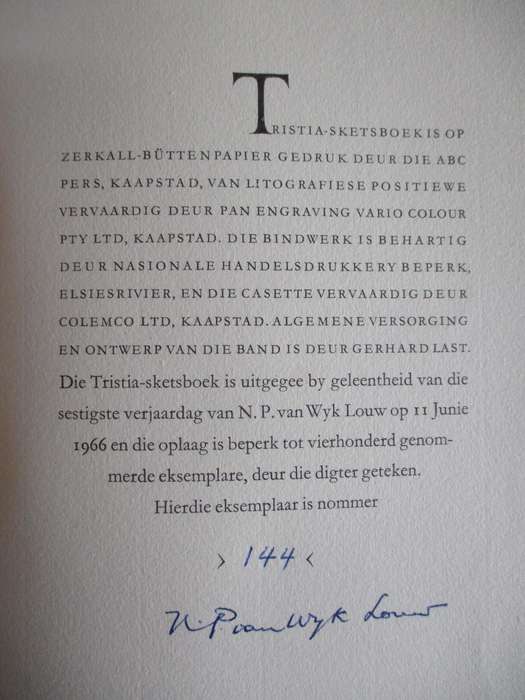 TRISTIA-SKETSBOEK IS OP
ZERKALL-BÜTTENPAPIER GEDRUK DEUR DIE ABC
PERS, KAAPSTAD, VAN LITOGRAFIESE POSITIEWE
VERVAARDIG DEUR PAN ENGRAVING VARIO COLOUR
PTY LTD, KAAPSTAD. DIE BINDWERK IS BEHARTIG
DEUR NASIONALE HANDELSDRUKKERY BEPERK,
ELSIESRIVIER, EN DIE CASETTE VERVAARDIG DEUR
COLEMCO LTD, KAAPSTAD. ALGEMENE VERSORGING
EN ONTWERP VAN DIE BAND IS DEUR GERHARD LAST.
Die Tristia-sketsboek is uitgegee by geleentheid van die
sestigste verjaardag van N. P. van Wyk Louw op 11 Junie
1966 en die oplaag is beperk tot vierhonderd genom-
merde eksemplare, deur die digter geteken.
Hierdie eksemplaar is nommer
› 144 ‹
N. P. van Wyk Louw